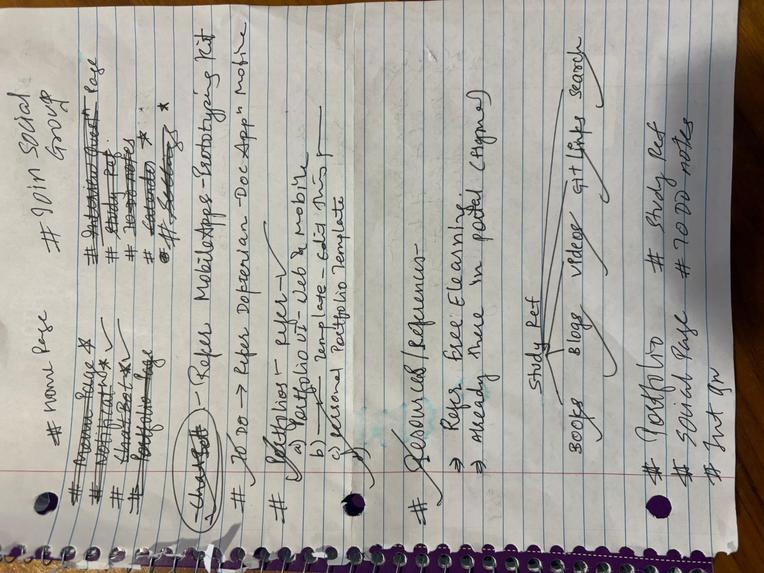 # Home Page # Join Social Group
# Menu Page * # Interview Quesn Page
# Notificatns * ✓ # Study Ref.
# Chat Bot * ✓ # To Do notes
# Portfolio Page # Calendar *
# Settings *
Chatbot - Refer Mobile Apps - Prototyping Kit
# TO DO → Refer Dopterian - Doc Appn Mobile
# Portfolios - Refer - ✓
a) Portfolio UI - Web & Mobile
b) Template - Edit This
c) Personal Portfolio Template
# Resources/References -
⇒ Refer Free Elearning.
⇒ Already there in portal (Figma)
Study Ref
Books Blogs Videos Git Links Search
# Portfolio # Study Ref
# Social Page # To Do notes
# Int Qn